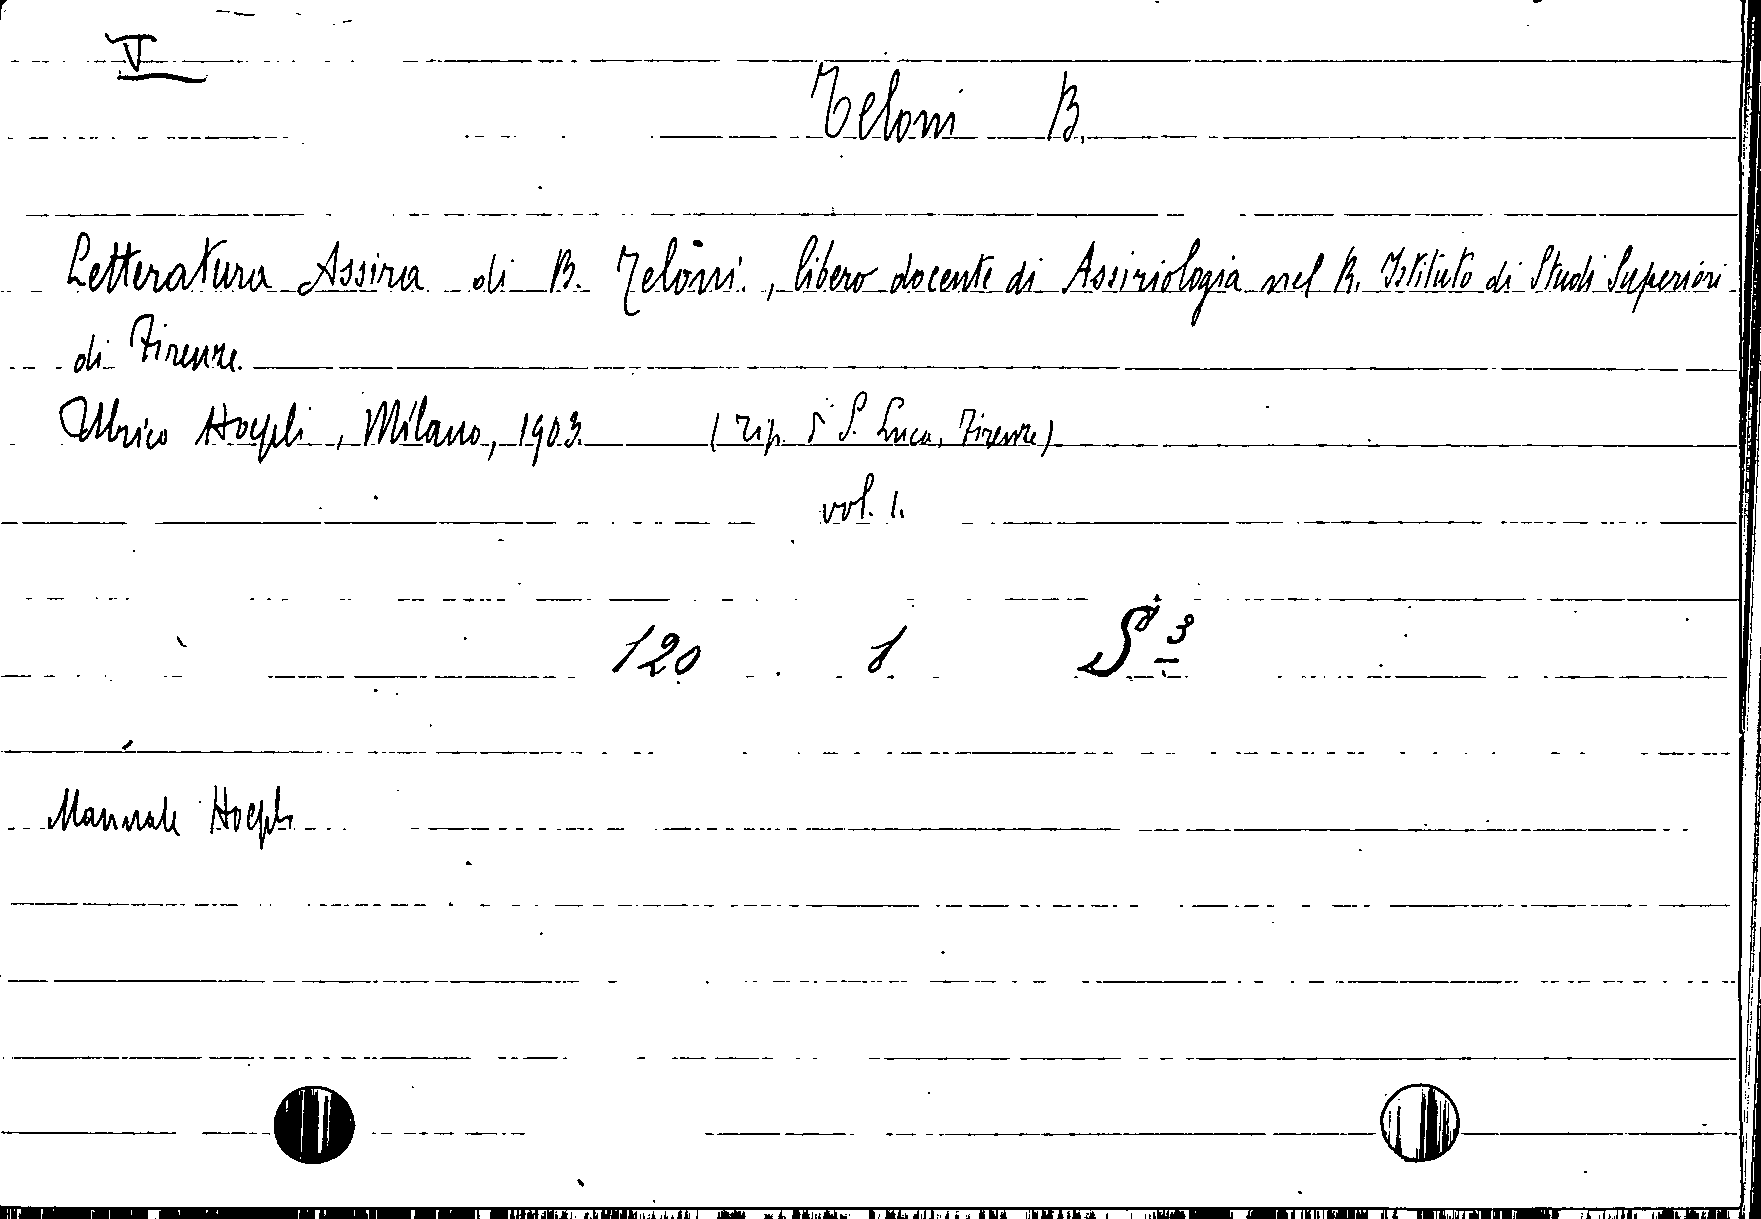 V
Teloni B.
Letteratura Assira di B. Teloni., libero docente di Assiriologia nel R. Istituto di Studi Superiori
di Firenze.
Ulrico Hoepli, Milano, 1903. (Tip. S. Luca, Firenze)
vol. 1.
120 1 S 3
Manuale Hoepli